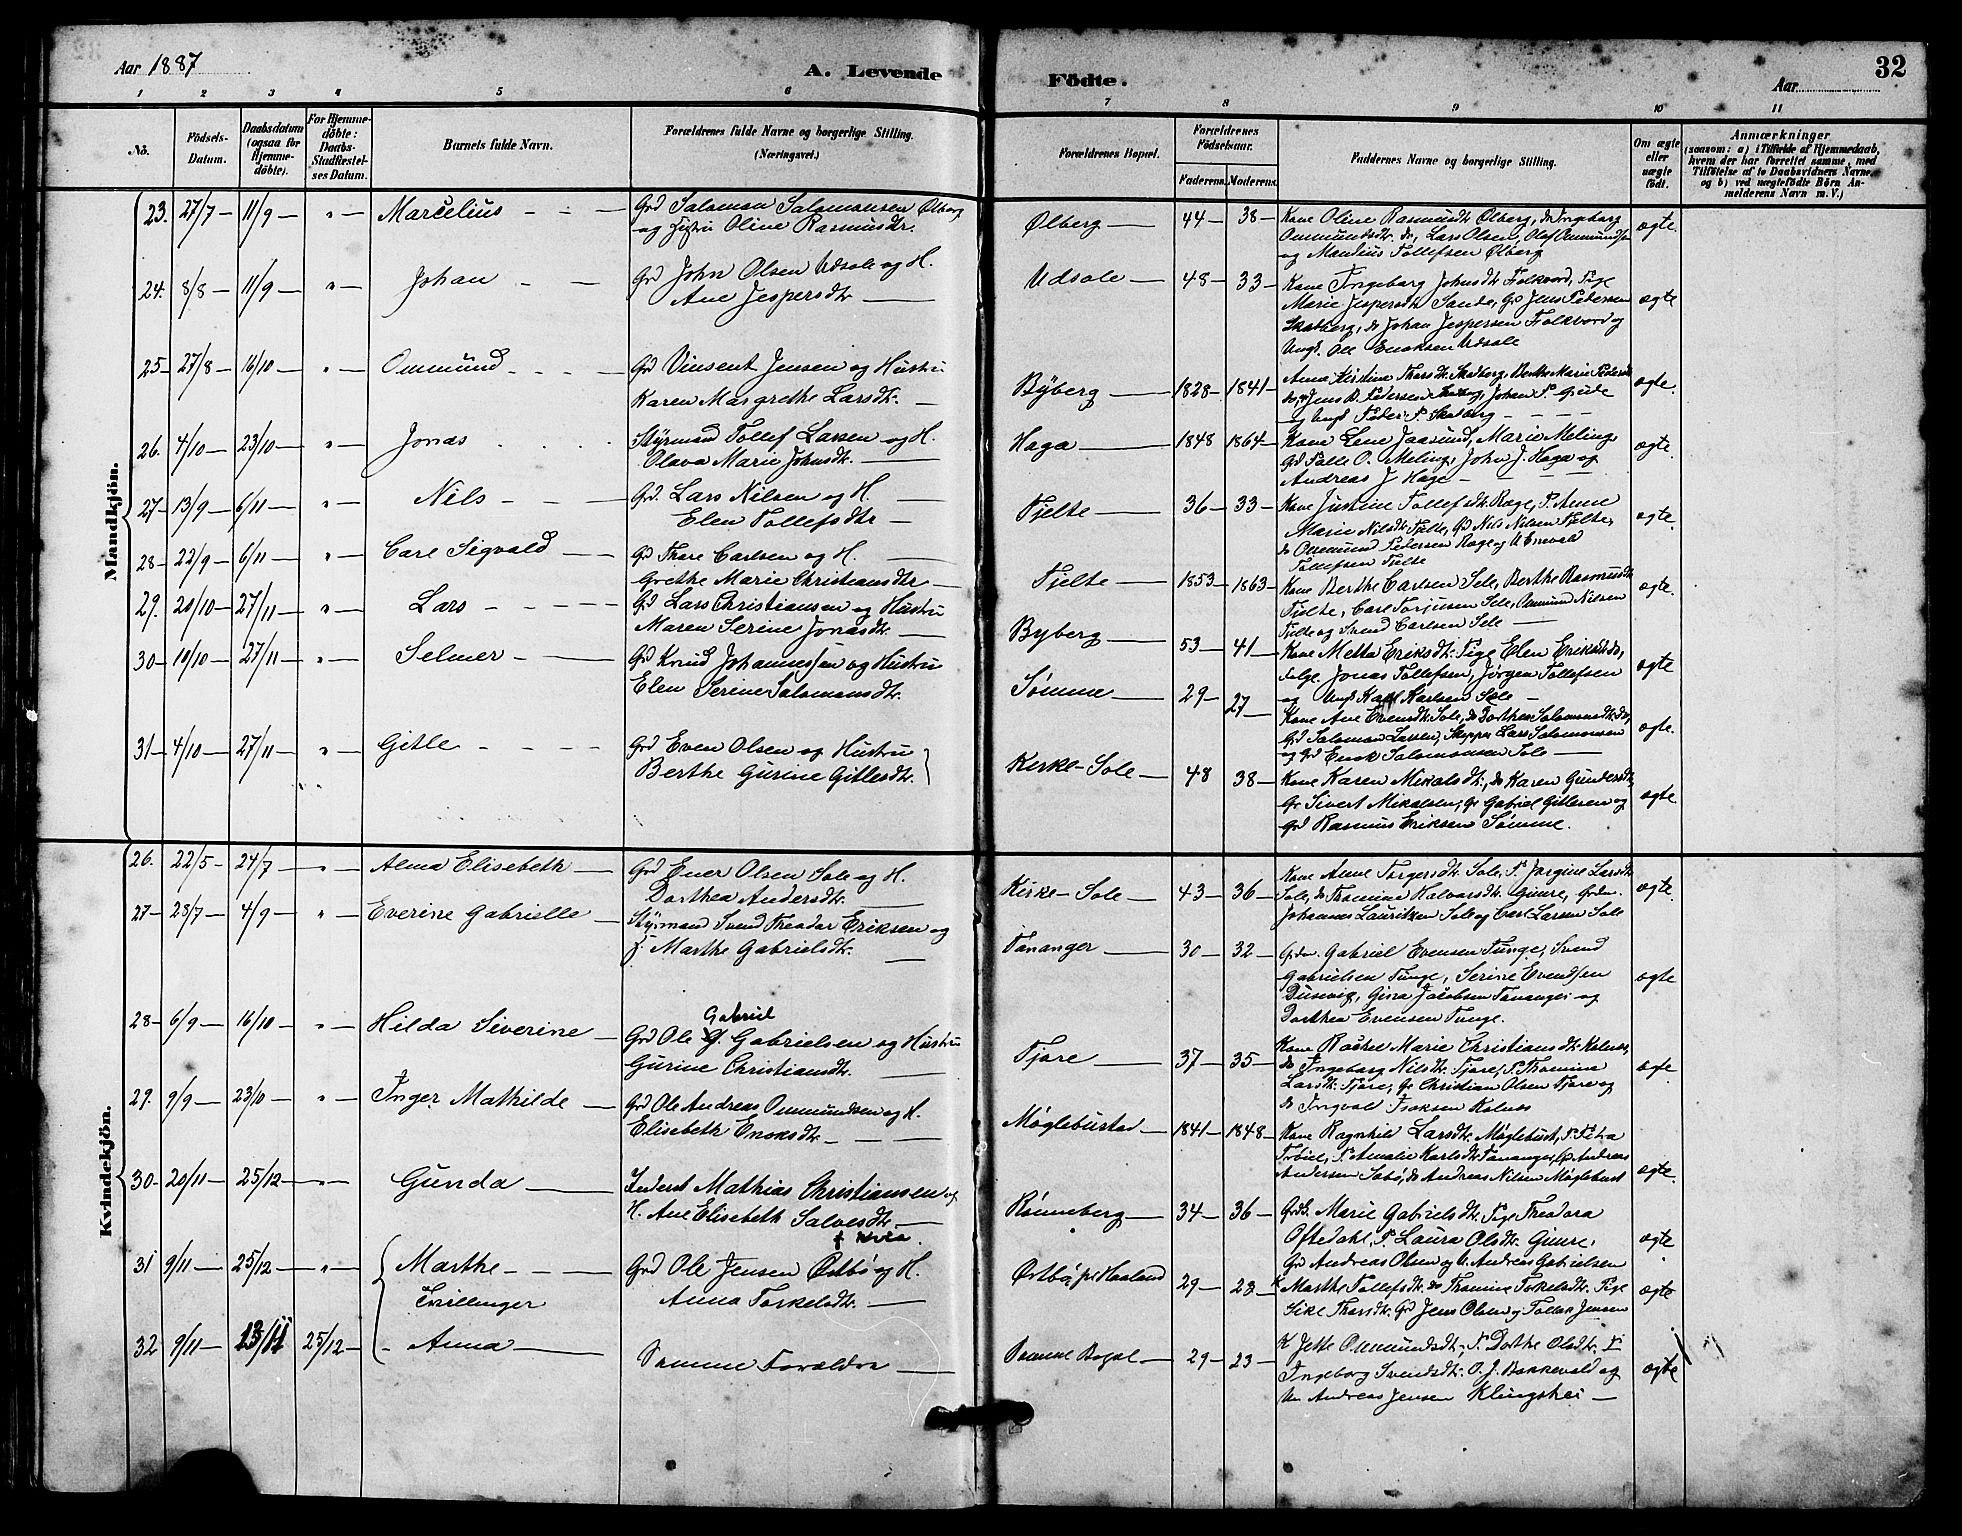 Aar 1887
A. Levende
Födte.
Aar
32
1 2 3 4 5 6 7 8 9 10 11
No.
Födsels-Datum.
Daabsdatum (ogsaa for Hjemmedöbte).
For Hjemmedöbte: Daabs-Stadfæstelses Datum.
Barnets fulde Navn.
Forældrenes fulde Navne og borgerlige Stilling.
(Næringsvei.)
Forældrenes Bopæl.
Forældrenes Födselsaar.
Faderens. Moderens.
Faddernes Navne og borgerlige Stilling.
Om ægte eller uægte födt.
Anmærkninger
(saasom: a) i Tilfælde af Hjemmedaab, hvem der har forrettet samme, med Tilföielse af to Daabsvidners Navne, og b) ved uægtefödte Börn Anmelderens Navn m. V.)
Mandkjön.
23. 27/7 — 11/9 — " — Marcelius — Grd Salamon Salamonsen Ølberg
og Hustru Oline Rasmusdtr.
Ølberg — 44 — 38 — Kone Oline Rasmusdtr Ølberg, do Ingeborg
Ommundsdtr. do, Lars Olsen, Olaf Ommundsen
og Mandius Tollefsen Ølberg
ægte
24. 8/8 — 11/9 — " — Johan — Grd John Olsen Udsole og H.
Ane Jespersdtr —
Udsole — 48 — 33 — Kone Ingeborg Johnsdtr Folkvord, Pige
Marie Jespersdtr Sande, Grd Jens Pedersen
Skadberg, do Johan Jespersen Folkvord og
Ungk. Ole Enoksen Udsole
ægte
25 — 27/8 — 16/10 — " — Ommund — Grd Vinsent Jensen og Hustru
Karen Margrethe Larsdtr. —
Byberg — 1828 — 1841 — Anna Kirstine Thorsdtr Skadberg, Berthe Marie Pedersdtr
do, Jens B. Pedersen Skadberg, Johan P. Grude
og Ungk Peder P. Skadberg —
ægte.
26. 4/10 — 23/10 — " — Jonas — Styrmand Tollef Larsen og H.
Olava Marie Johnsdtr. —
Haga — 1848 1864 — Kone Lene Jaasund, Marie Meling,
Grd Palle O. Meling, John J. Haga og
Andreas J Haga —
ægte.
27 — 13/9 — 6/11 — " — Nils — Grd. Lars Nilsen og H. —
Elen Tollefsdtr —
Tjelte — 36 — 33 — Kone Justine Tollefsdtr Ræge, P. Anne
Marie Nilsdtr Tjelte, Grd Nils Nilsen Tjelte,
do Ommund Pedersen Ræge og U Enevald
Tollefsen Tjelte
ægte.
28 — 22/9 — 6/11 — " — Carl Sigvald — Grd Thore Carlsen og H. —
Grethe Marie Christiansdtr —
Tjelte — 1853 — 1863 — Kone Berthe Carlsen Sele, Berthe Rasmusdtr
Tjelte, Carl Torjusen Sele, Ommund Nilsen
Tjelte og Svend Carlsen Sele —
ægte.
29. 20/10 — 27/11 — " — Lars — Grd Lars Christiansen og Hustru
Maren Serine Jonasdtr. —
Byberg — 53 — 41 — Kone Metta Eriksdtr. Pige Elen Eriksdtr do,
Jonas Tollefsen, Jørgen Tollefsen
og Ungk Karl Karlsen Sele —
ægte
30 — 10/10 — 27/11 — " — Selmer — Grd Knud Johannessen og Hustru
Elen Serine Salamonsdtr.
Sømme — 29 — 27 — Kone Ane Evensdtr Sole, do Dorthea Salamonsdtr do,
Grd Salamon Larsen, Skipper Lars Salomonsen
og Grd Enok Salomonsen Sole —
ægte.
31 — 4/10 — 27/11 — " — Gitle — Grd Even Olsen og Hustru
Berthe Gurine Gitlesdtr.
Kirke-Sole — 48 38 — Kone Karen Mikalsdtr., do Karen Gundersdtr,
Gr Sivert Mikalsen, Gr Gabriel Gitlesen og
Grd Rasmus Eriksen Sømme.
ægte
Kvindekjön.
26. 22/5 — 24/7 — " — Alma Elisebeth — Grd Ener Olsen Sole og H.
Dorthea Andersdtr. —
Kirke-Sole — 43 — 36 — Kone Anne Torgersdtr Sole, P. Jorgine Larsdtr
Sole, do Tromine Halvorsdtr Gimre, Grdm.
Johannes Lauritzen Sole og Carl Larsen Sole
ægte.
27 — 28/7 — 4/9 — " — Everine Gabrielle — Styrmand Svend Theodor Eriksen og
H. Marthe Gabrielsdtr. —
Tananger — 30 — 32 — Grdm. Gabriel Evensen Tunge, Svend
Gabrielsen Tunge, Serine Evendsen
Dusevig, Gina Jacobsen Tananger og
Dorthea Evensen Tunge.
ægte
28 — 6/9 — 16/10 — " — Hilda Siverine — Grd Ole Gabriel Gabrielsen og Hustru
Gurine Christiansdtr. —
Tjøre — 37 — 35 — Kone Rachel Marie Christiansdtr Kolnes,
do Ingeborg Nilsdtr. Tjøre, P. Tromina
Larsdtr. Tjøre, Gr Christian Olsen Tjøre og
do Ingvald Isaksen Kolnes
ægte
29. 9/9 — 23/10 — " — Inger Mathilde — Grd Ole Andreas Ommundsen og H.
Elisebeth Enoksdtr. —
Møglebustad — 1841 — 1848 — Kone Ragnhild Larsdtr. Møglebust, P. Petra
P. Amalie Karlsdtr Tananger, Gr Andreas
Andersen Sobø, do Andreas Nilsen Møglebust
ægte.
30 — 20/11 — 25/12 — " — Gunda — Inderst Mathias Christiansen og
H. Ane Elisebeth Salvesdtr. —
Rønneberg — 34 — 36 — Grdk. Marie Gabrielsdtr. Pige Theodora
Oftedahl, P. Laura Olsdtr. Gimre,
Gr Andreas Olsen og U. Andreas Gabrielsen
ægte
31 9/11 — 25/12 — " — Marthe — Grd Ole Jensen Østbø og H.
Anna Torkelsdtr. —
Tvillinger
Østbø pr Haaland 29 — 23 K Marthe Tollefsdtr. do Tromine Torkelsdtr. Pige
Sike Thorsdtr. Grd Jens Olsen og Tollak Jensen
ægte
32 9/11 — 13/11 25/12 — Anna — Samme Forældre —
Samme Bopæl — 29 — 23 — K Jette Ommundsdtr. P. Dorthe Olsdtr. P
Ingeborg Svendsdtr. O. J. Bakkevold og
Um Andreas Jensen Klingshei —
ægte